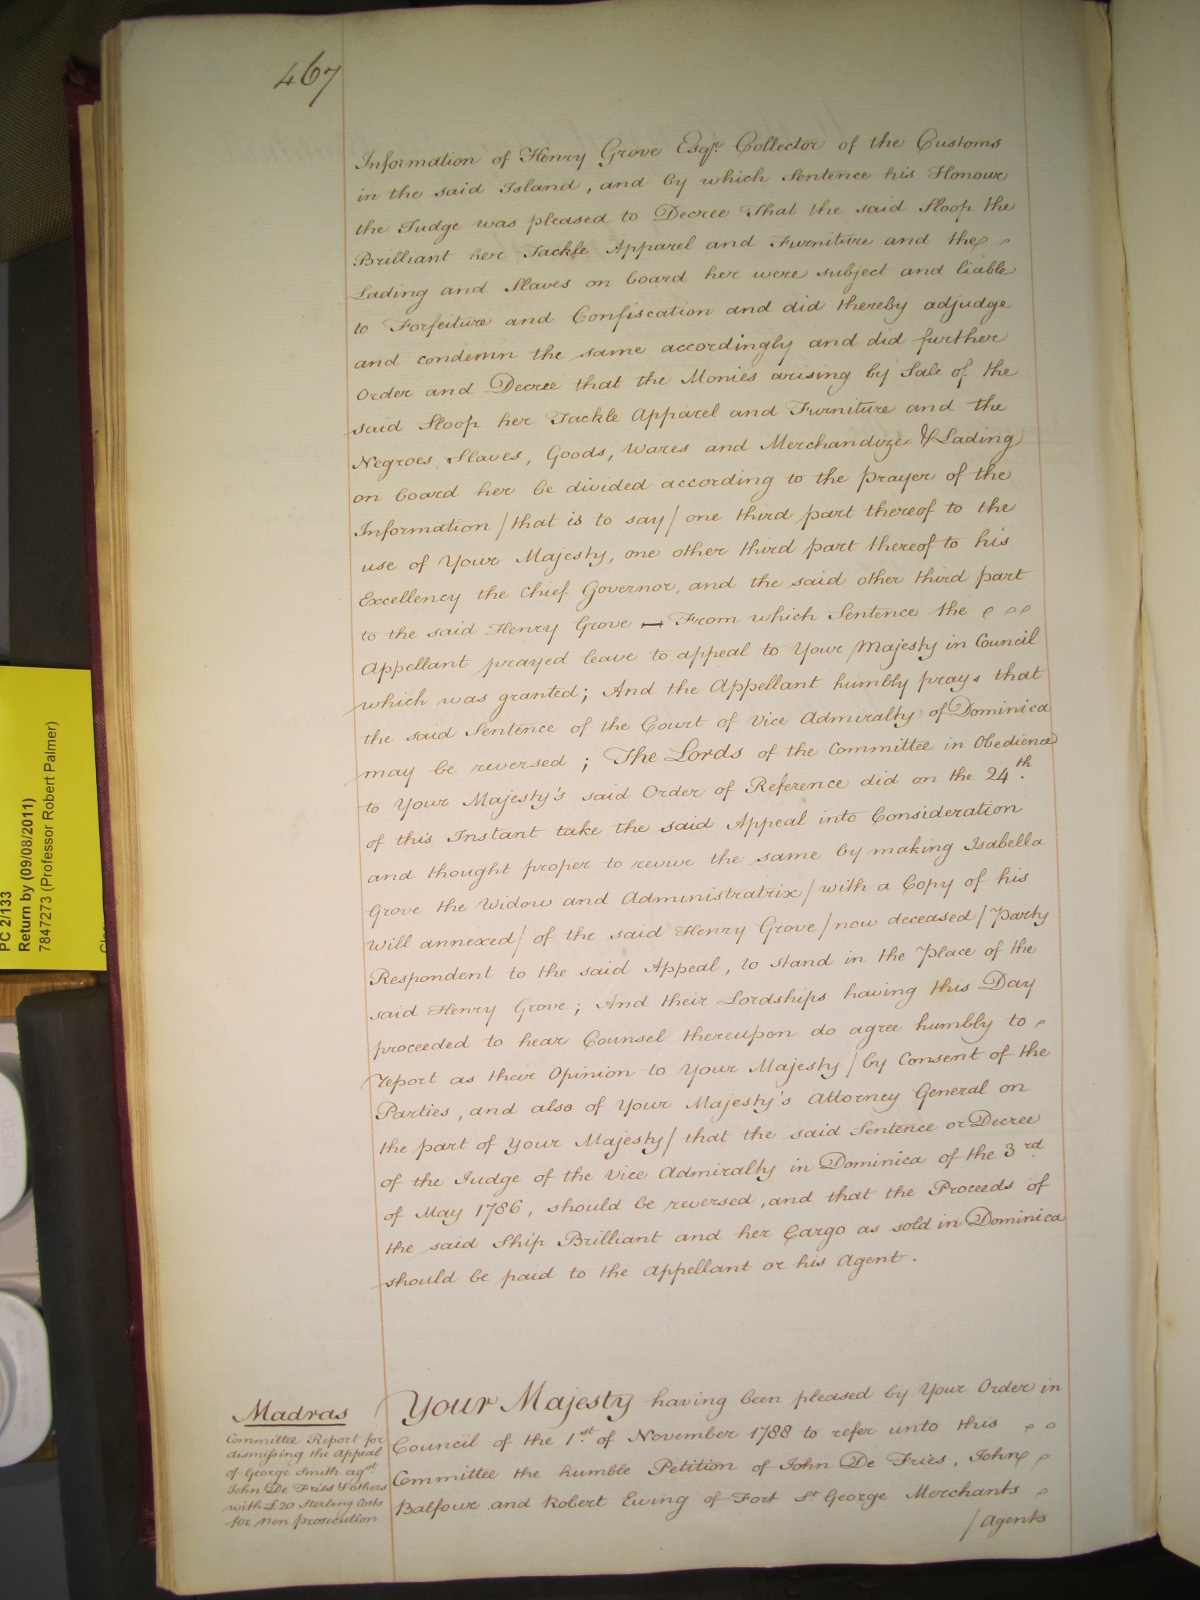 467
Information of Henry Grove Esqr. Collector of the Customs
in the said Island, and by which Sentence his Honour
the Judge was pleased to Decree That the said Sloop the
Brilliant her Tackle Apparel and Furniture and the
Lading and Slaves on board her were subject and liable
to Forfeiture and Confiscation and did thereby adjudge
and condemn the same accordingly and did further
Order and Decree that the Monies arising by Sale of the
said Sloop her Tackle Apparel and Furniture and the
Negroes, Slaves, Goods, Wares and Merchandize & Lading
on board her be divided according to the prayer of the
Information /that is to say/ one third part thereof to the
use of Your Majesty, one other third part thereof to his
Excellency the Chief Governor, and the said other third part
to the said Henry Grove — From which Sentence the
Appellant prayed leave to appeal to Your Majesty in Council
which was granted; And the Appellant humbly prays that
the said Sentence of the Court of Vice Admiralty of Dominica
may be reversed; The Lords of the Committee in Obedience
to Your Majesty's said Order of Reference did on the 24th.
of this Instant take the said Appeal into Consideration
and thought proper to revive the same by making Isabella
Grove the Widow and Administratrix /with a Copy of his
Will annexed/ of the said Henry Grove /now deceased/ Party
Respondent to the said Appeal, to stand in the Place of the
said Henry Grove; And their Lordships having this Day
proceeded to hear Counsel thereupon do agree humbly to
report as their Opinion to Your Majesty /by Consent of the
Parties, and also of Your Majesty's Attorney General on
the part of Your Majesty/ that the said Sentence or Decree
of the Judge of the Vice Admiralty in Dominica of the 3rd
of May 1786, should be reversed, and that the Proceeds of
the said Ship Brilliant and her Cargo as sold in Dominica
should be paid to the Appellant or his Agent.
Madras
Committee Report for
dismissing the Appeal
of George Smith agst.
John De Fries & others
with £20 Sterling Costs
for Non prosecution
Your Majesty having been pleased by Your Order in
Council of the 1st. of November 1788 to refer unto this
Committee the humble Petition of John De Fries, John
Balfour and Robert Ewing of Fort St George Merchants
/Agents
PC 2/133
Return by (09/08/2011)
7847273 (Professor Robert Palmer)